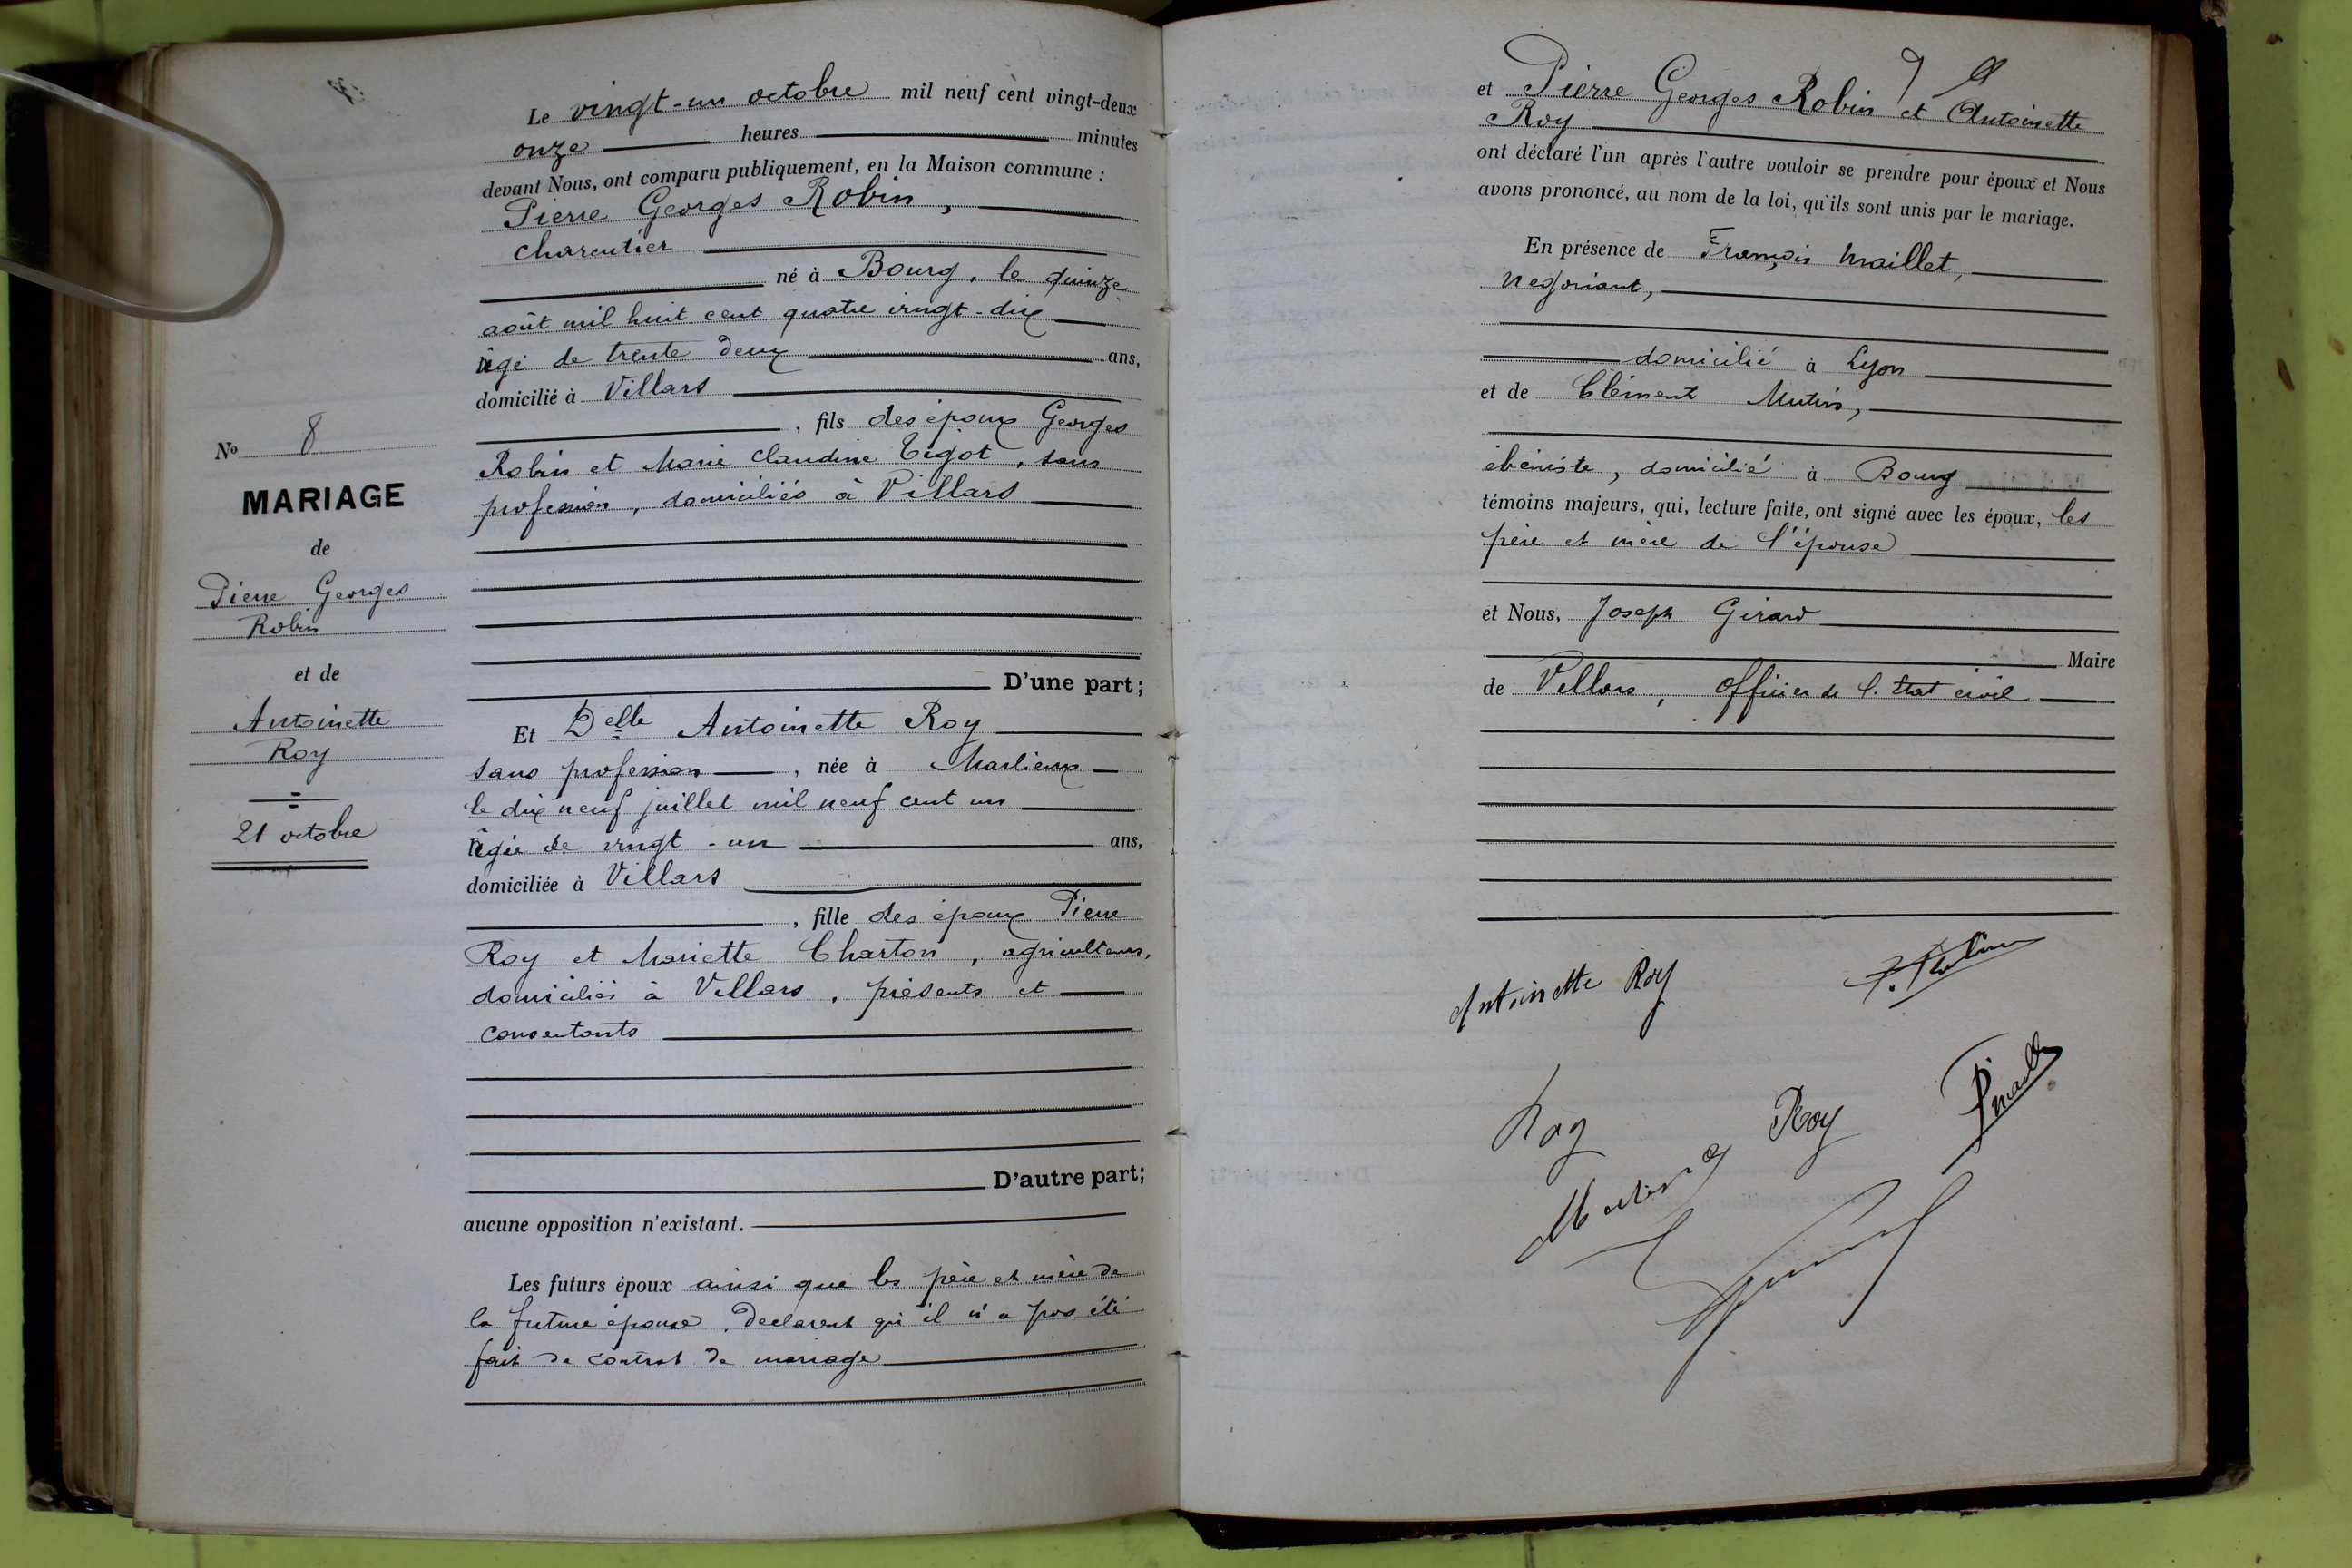 Le vingt-un octobre mil neuf cent vingt-deux
onze heures minutes
devant Nous, ont comparu publiquement, en la Maison commune :
Pierre Georges Robin,
charcutier
né à Bourg, le quinze
août mil huit cent quatre vingt-dix
âgé de trente deux ans,
domicilié à Villars
, fils des époux Georges
Robin et Marie Claudine Tigot, sans
profession, domiciliés à Villars
D'une part;
Et Delle Antoinette Roy
sans profession, née à Marlieux
le dix neuf juillet mil neuf cent un
âgée de vingt-un ans,
domiciliée à Villars
, fille des époux Pierre
Roy et Mariette Charton, agriculteurs,
domiciliés à Villars, présents et
consentants
D'autre part;
aucune opposition n'existant.
Les futurs époux ainsi que les père et mère de
la future épouse, déclarent qu'il n'a pas été
fait de contrat de mariage
No 8
MARIAGE
de
Pierre Georges
Robin
et de
Antoinette
Roy
21 octobre
et Pierre Georges Robin et Antoinette
Roy
ont déclaré l'un après l'autre vouloir se prendre pour époux et Nous
avons prononcé, au nom de la loi, qu'ils sont unis par le mariage.
En présence de François Maillet,
négociant,
domicilié à Lyon
et de Clément Mutin,
ébéniste, domicilié à Bourg
témoins majeurs, qui, lecture faite, ont signé avec les époux, les
père et mère de l'épouse
et Nous, Joseph Girard
Maire
de Villars, officier de l'Etat civil
Antoinette Roy
P. Robin
Roy
Roy